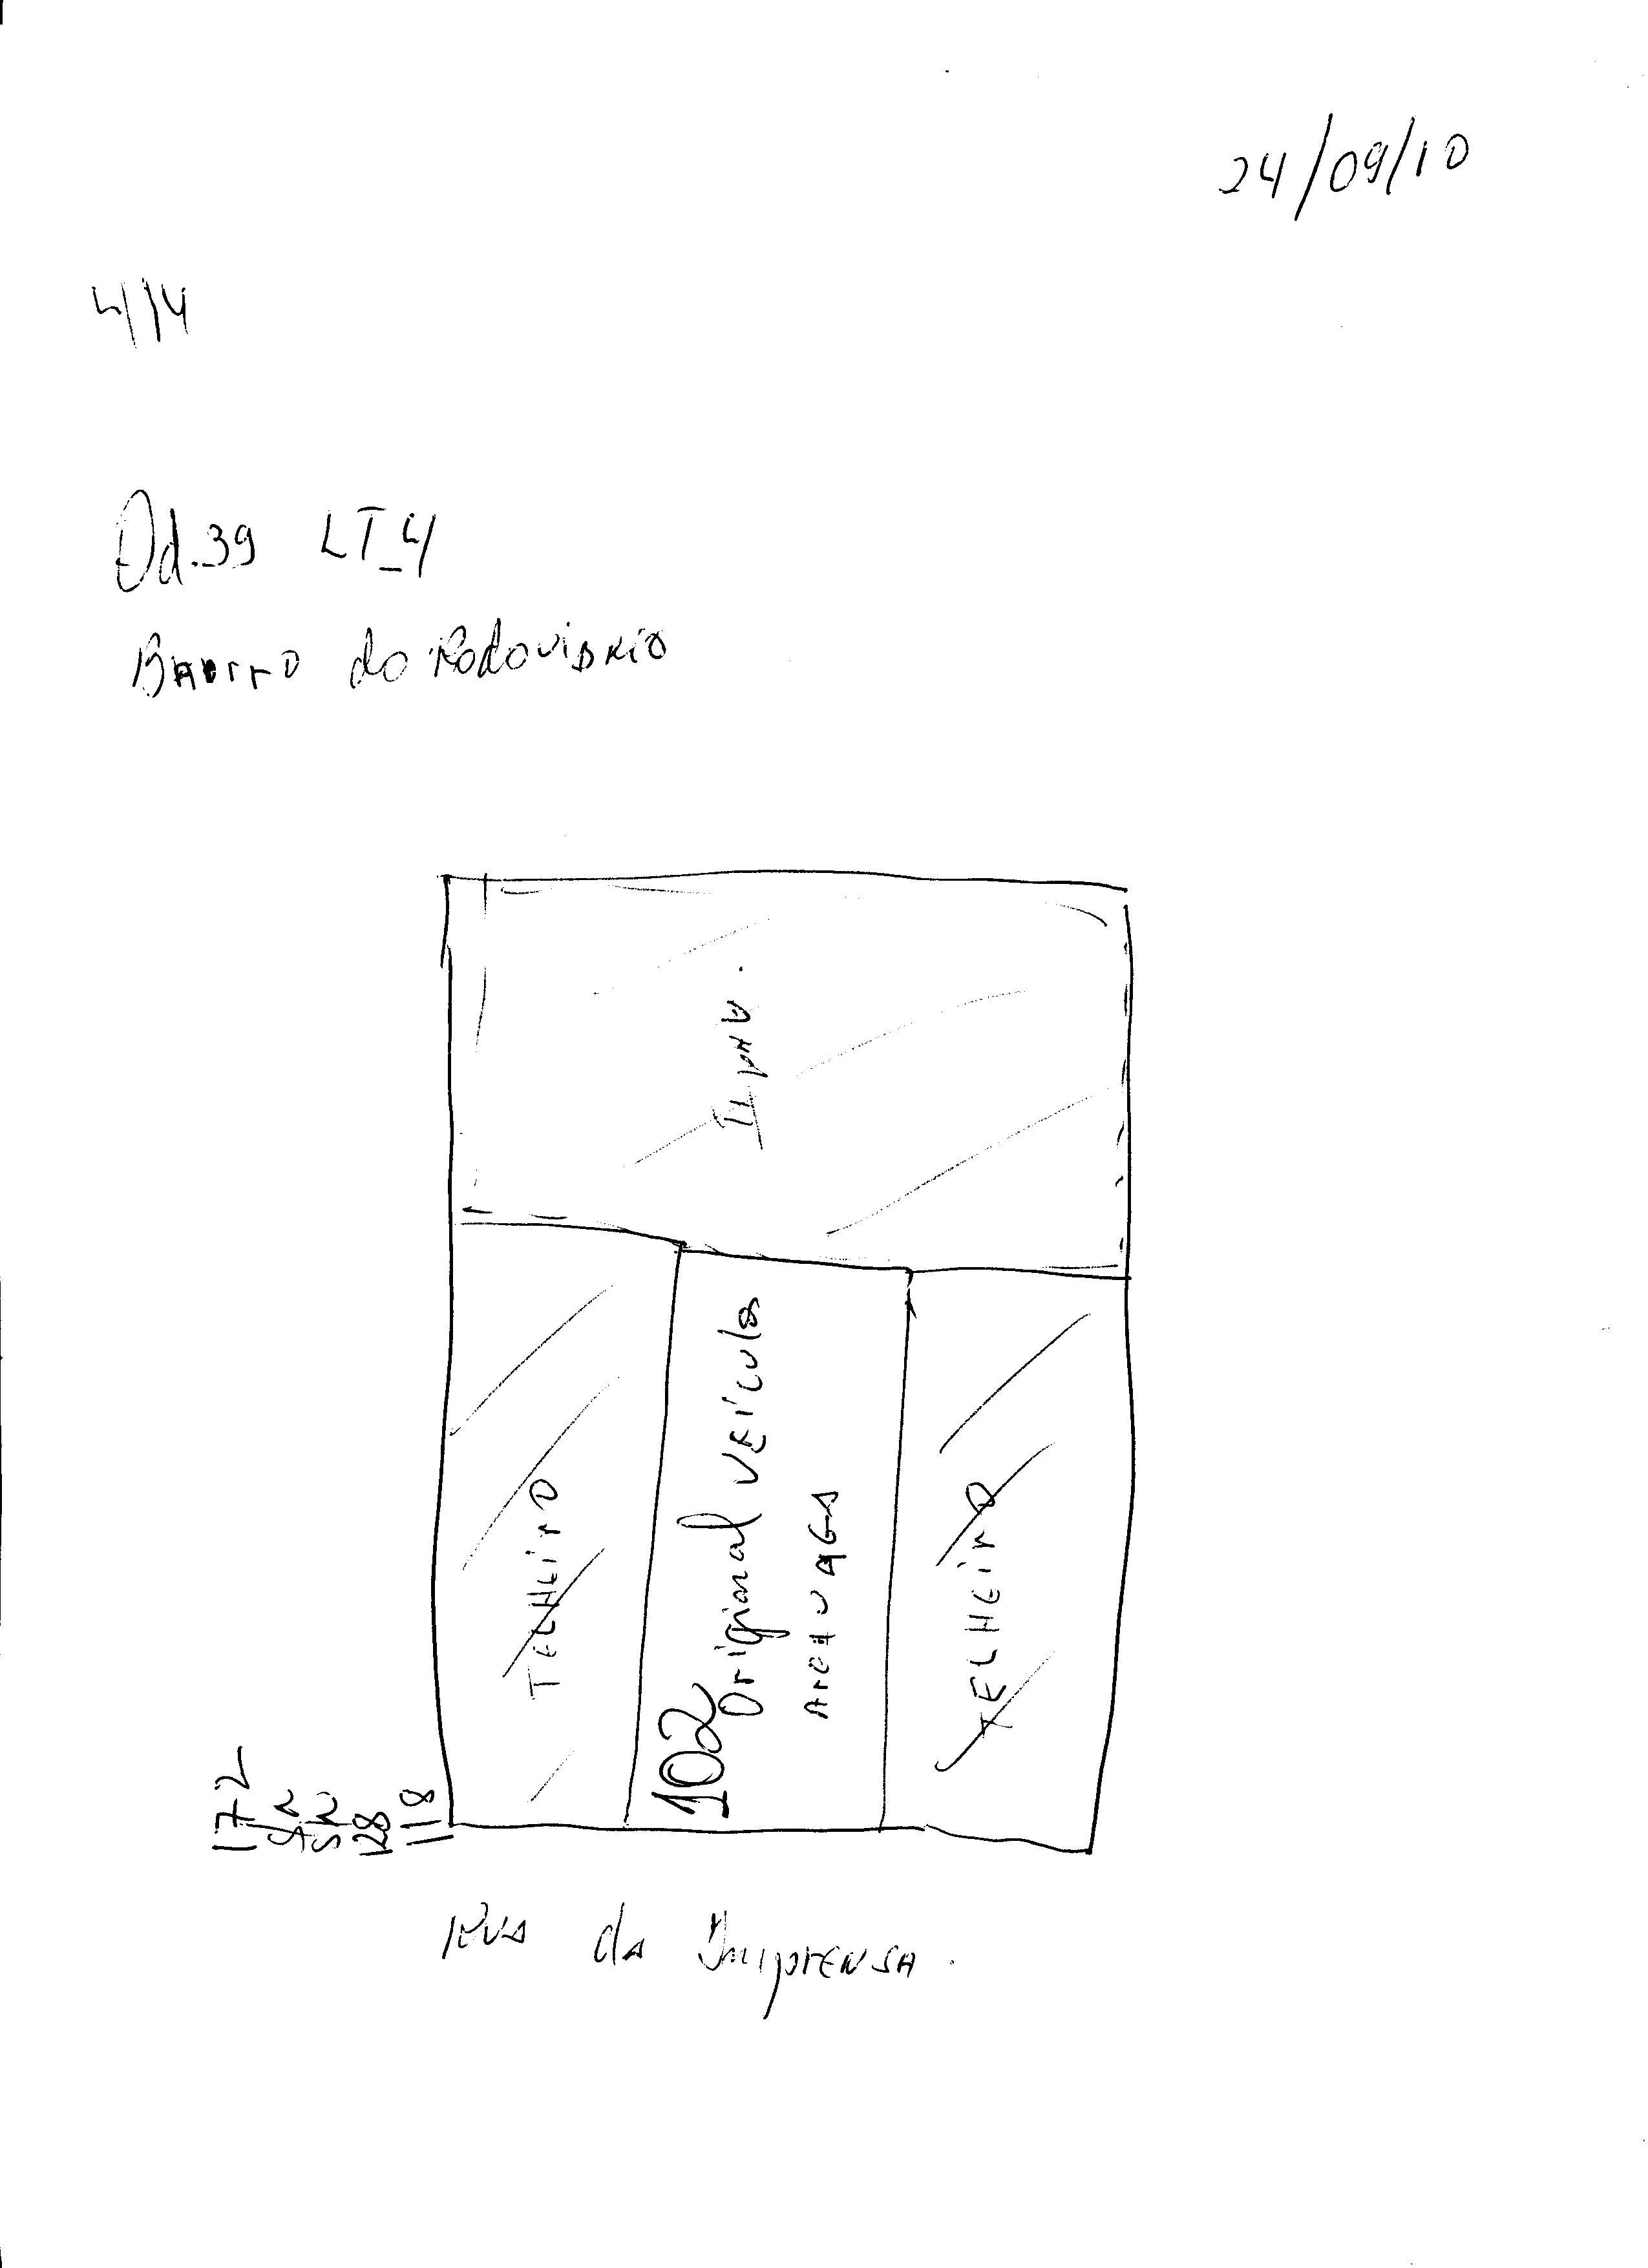 24/09/10
4/14
Qd.39 LT_4
Bairro do Rodoviário
TELHEirO
102
Original VEÍCULOS
TELHEirO
172
52
52
128
118
RUA da ImprENSA.